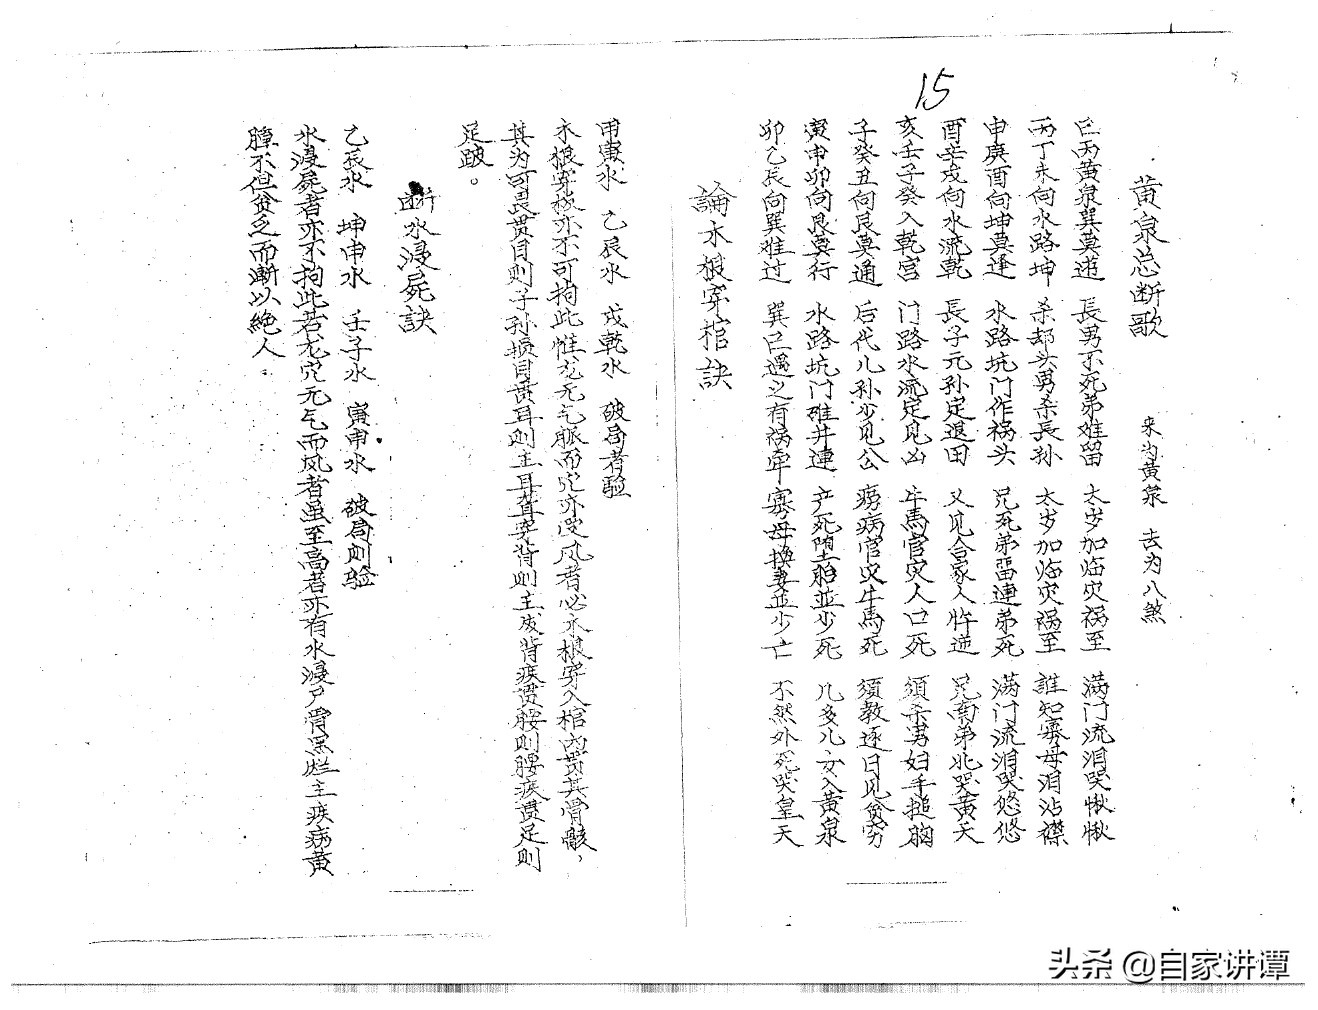 15
黄泉总断歌 来为黄泉 去为八煞
巳丙黄泉巽莫逰 長男不死弟难留 太岁加临灾祸至 满门流泪哭愀愀
丙丁未向水路坤 杀却头男杀長孙 太岁加临灾祸至 誰知寡母泪沾襟
申庚酉向坤莫逢 水路坑门作祸头 兄死弟畄連弟死 满门流泪哭悠悠
酉辛戌向水流乾 長子元孙定退田 又见合家人忤逆 兄南弟北哭黄天
亥壬子癸入乾宫 门路水流定见凶 牛馬官灾人口死 须杀男妇手搥胸
子癸丑向艮莫通 后代儿孙少见公 痨病官灾牛馬死 须教逐日见貧穷
寅甲卯向艮莫行 水路坑门碓井連 产死堕胎並少死 几多儿女入黄泉
卯乙辰向巽难过 巽巳遇之有祸牵 寡母換妻並少亡 不然外死哭皇天
論木根穿棺訣
甲寅水 乙辰水 戌乾水 破局者验
木根穿棺亦不可拘此惟龙无气脈而穴亦受风者必木根穿入棺内贯其骨骸，
其为可畏贯目则子孙损目贯耳则主耳聋穿背则主成背疾贯腰则腰疾贯足则
足跛。
断水浸屍訣
乙辰水 坤申水 壬子水 寅申水 破局则验
水浸屍者亦不拘此若龙穴无气而风者虽至高者亦有水浸尸骨黑烂主疾病黄
膧不但貧乏而漸以絶人。
头条 @自家讲谭